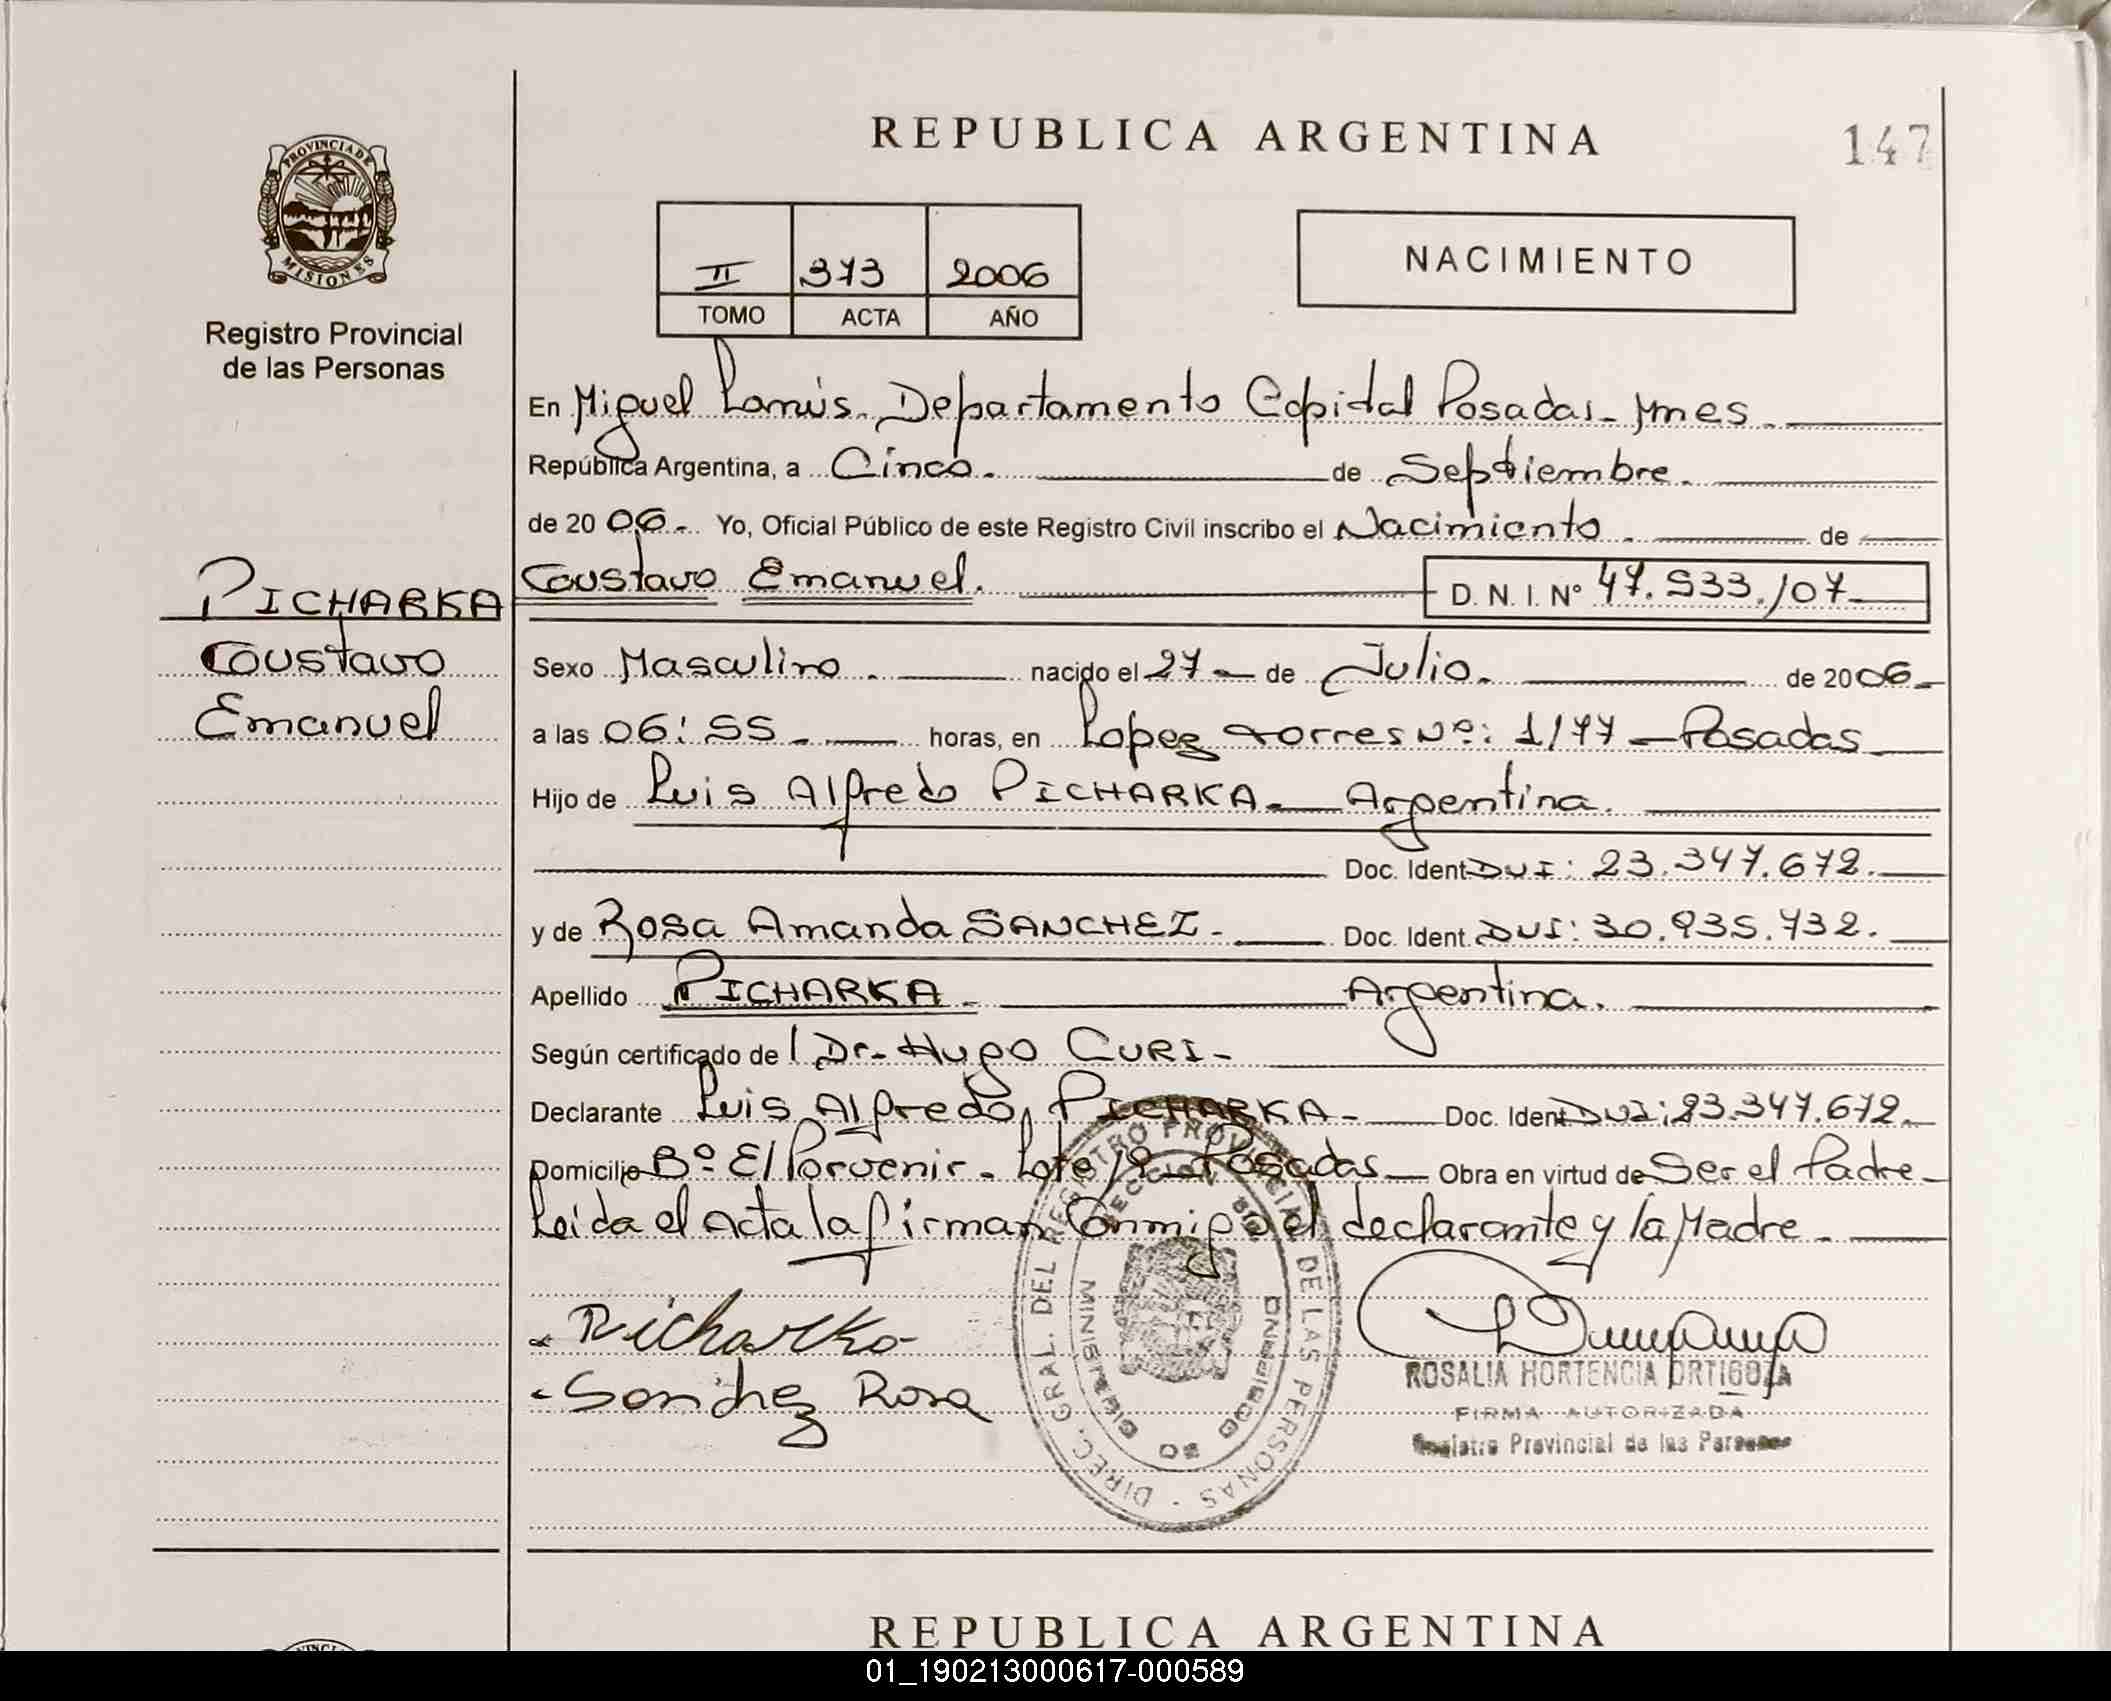 REPUBLICA ARGENTINA
147
PROVINCIA DE MISIONES
Registro Provincial
de las Personas
II 373 2006
TOMO ACTA AÑO
NACIMIENTO
En Miguel Lanús. Departamento Capital Posadas - Mnes.
República Argentina, a Cinco. de Septiembre.
de 20 06.- Yo, Oficial Público de este Registro Civil inscribo el Nacimiento. de
PICHARKA
Gustavo
Emanuel
Gustavo Emanuel. D. N. I. N° 47.533.107
Sexo Masculino. nacido el 27 de Julio. de 2006-
a las 06:55 - horas, en Lopez torres Nº: 1177 - Posadas
Hijo de Luis Alfredo PICHARKA - Argentina.
Doc. Ident DNI: 23.347.672.
y de Rosa Amanda SANCHEZ - Doc. Ident. DNI: 30.935.732.
Apellido PICHARKA - Argentina.
Según certificado de Dr. Hugo CURI -
Declarante Luis Alfredo PICHARKA - Doc. Ident DNI: 23.347.672.
Domicilio Bº El Porvenir - Lote 12 Posadas - Obra en virtud de Ser el Padre -
Leida el acta la firman Conmigo el declarante y la Madre.
Picharka
Sanchez Rosa
DIREC. GRAL. DEL REGISTRO PROVINCIAL DE LAS PERSONAS
ROSALIA HORTENCIA ORTIGOZA
FIRMA AUTORIZADA
Registro Provincial de las Personas
REPUBLICA ARGENTINA
01_190213000617-000589